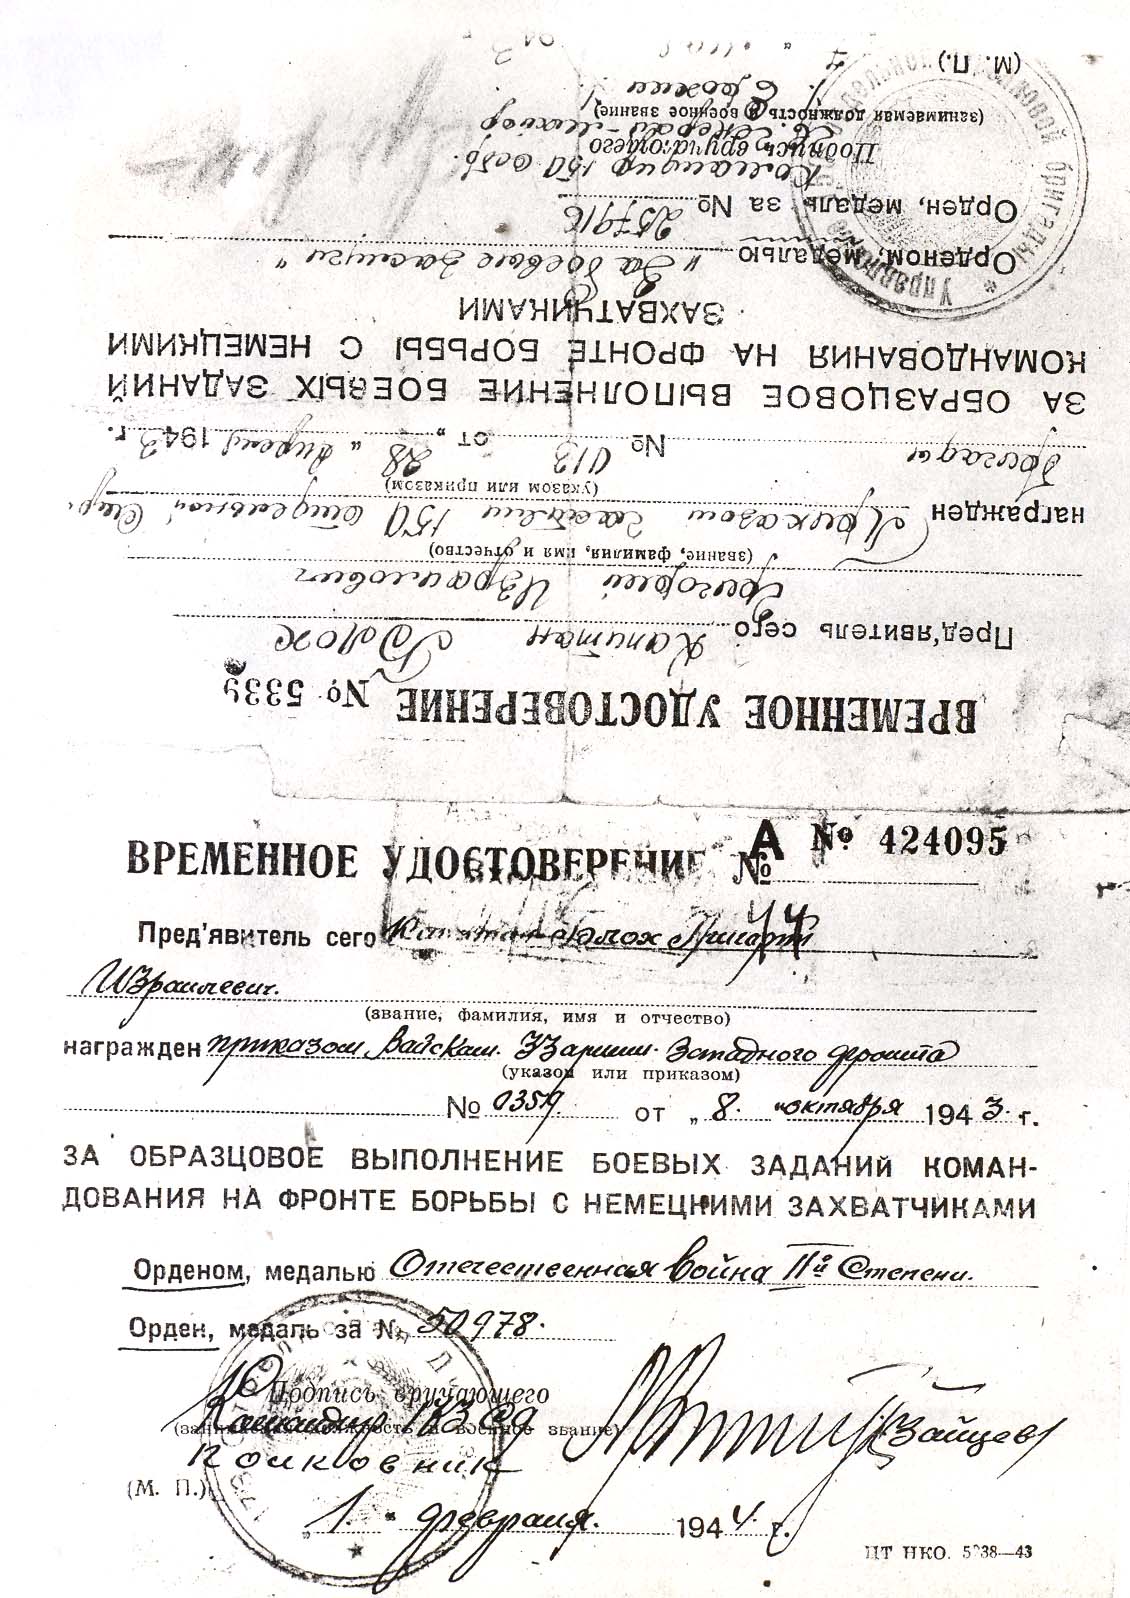 ВРЕМЕННОЕ УДОСТОВЕРЕНИЕ № 5339
Пред'явитель сего Капитан Блох
Григорий Израилович
(звание, фамилия, имя и отчество)
награжден Приказом частям 150 отдельной Стр.
(указом или приказом)
бригады № 013 от „28“ Апреля 1943 г.
ЗА ОБРАЗЦОВОЕ ВЫПОЛНЕНИЕ БОЕВЫХ ЗАДАНИЙ
КОМАНДОВАНИЯ НА ФРОНТЕ БОРЬБЫ С НЕМЕЦКИМИ
ЗАХВАТЧИКАМИ
Орденом, медалью „За боевые заслуги“
Орден, медаль за № 257916
Командир 150 осбр.
Подпись вручающего
-майор
(занимаемая должность и военное звание)
(М. П.)
Управление отдельной стрелковой бригады
ВРЕМЕННОЕ УДОСТОВЕРЕНИЕ № А № 424095
44
Пред'явитель сего Капитан Блох Григорий
Израилевич.
(звание, фамилия, имя и отчество)
награжден приказом Войскам. 33 армии. Западного фронта
(указом или приказом)
№ 0359 от „8. “октября 1943. г.
ЗА ОБРАЗЦОВОЕ ВЫПОЛНЕНИЕ БОЕВЫХ ЗАДАНИЙ КОМАН-
ДОВАНИЯ НА ФРОНТЕ БОРЬБЫ С НЕМЕЦКИМИ ЗАХВАТЧИКАМИ
Орденом, медалью Отечественная война IIй Степени.
Орден, медаль за № 50978.
Подпись вручающего
Командир 173 сд
(занимаемая должность и военное звание)
Полковник Зайцев
(М. П.)
„1.“ февраля. 1944 г.
ЦТ НКО. 5 38—43